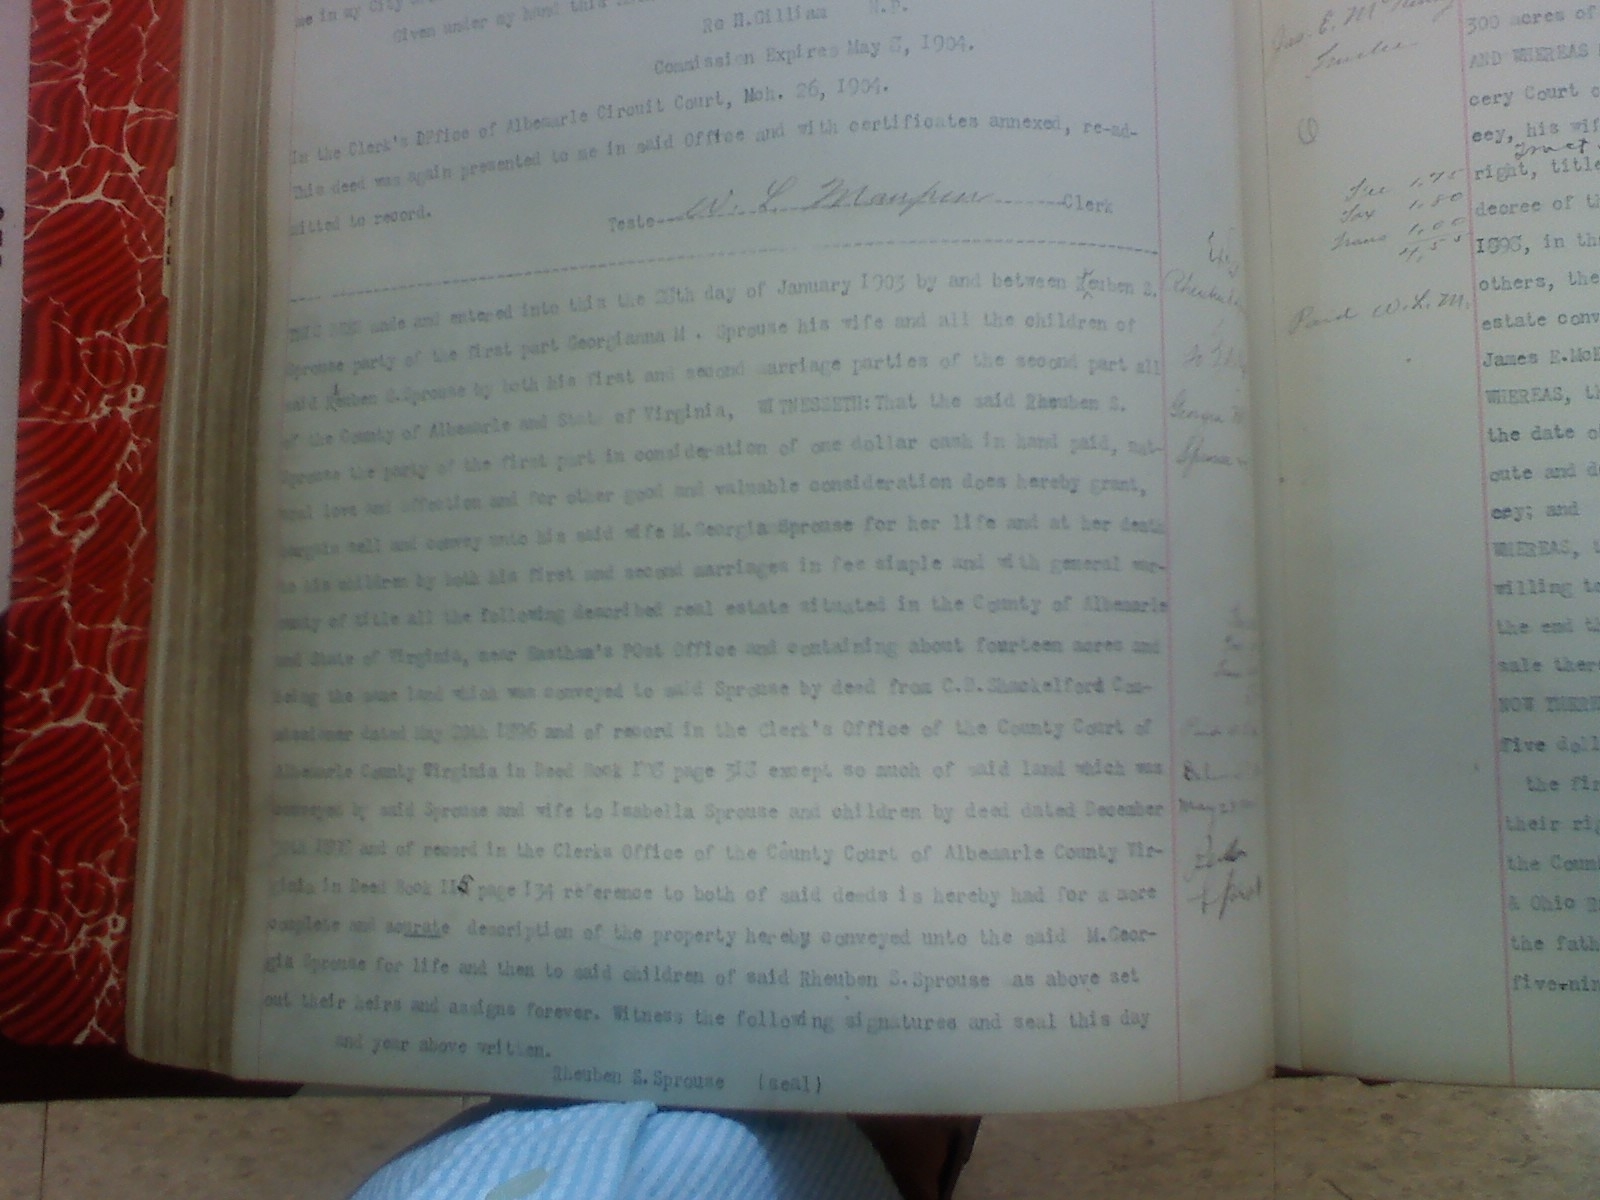 me in my City
Given under my hand this
Ro H.Gilliam N.P.
Commission Expires May 6, 1904.
In the Clerk's Office of Albemarle Circuit Court, Mch. 26, 1904.
This deed was again presented to me in said Office and with certificates annexed, re-ad-
mitted to record.
Teste W. L. Maupin Clerk
THIS DEED made and entered into this the 28th day of January 1903 by and between Reuben S.
Sprouse party of the first part Georgianna M . Sprouse his wife and all the children of
said Reuben S.Sprouse by both his first and second marriage parties of the second part all
of the County of Albemarle and State of Virginia, WITNESSETH:That the said Rheuben S.
Sprouse the party of the first part in consideration of one dollar cash in hand paid, nat-
ural love and affection and for other good and valuable consideration does hereby grant,
bargain sell and convey unto his said wife M.Georgia Sprouse for her life and at her death
to his children by both his first and second marriages in fee simple and with general war-
ranty of title all the following described real estate situated in the County of Albemarle
and State of Virginia, near Eastham's POst Office and containing about fourteen acres and
being the same land which was conveyed to said Sprouse by deed from C.E. Shackelford Com-
missioner dated May 1896 and of record in the Clerk's Office of the County Court of
Albemarle County Virginia in Deed Book page except so much of said land which was
conveyed by said Sprouse and wife to Isabella Sprouse and children by deed dated December
and of record in the Clerks Office of the County Court of Albemarle County Vir-
ginia in Deed Book 115 page 134 reference to both of said deeds is hereby had for a more
complete and acurate description of the property hereby conveyed unto the said M.Geor-
gia Sprouse for life and then to said children of said Rheuben S.Sprouse as above set
out their heirs and assigns forever. Witness the following signatures and seal this day
and year above written.
Rheuben S.Sprouse (seal)
Georgia M
Sprouse
Jas. E. Mc
Trustee
Fee 1.75
Tax 1.80
Trans 1.00
4.55
Paid W.L.M.
300 acres of
AND WHEREAS
cery Court
cey, his wif
Tract
right, title
decree of th
1893, in th
others, the
estate conv
James E.McK
WHEREAS, th
the date o
oute and d
cey; and
WHEREAS, t
willing to
the end th
sale ther
NOW THERE
five doll
the fir
their rig
the Coun
& Ohio
the fath
five-nin